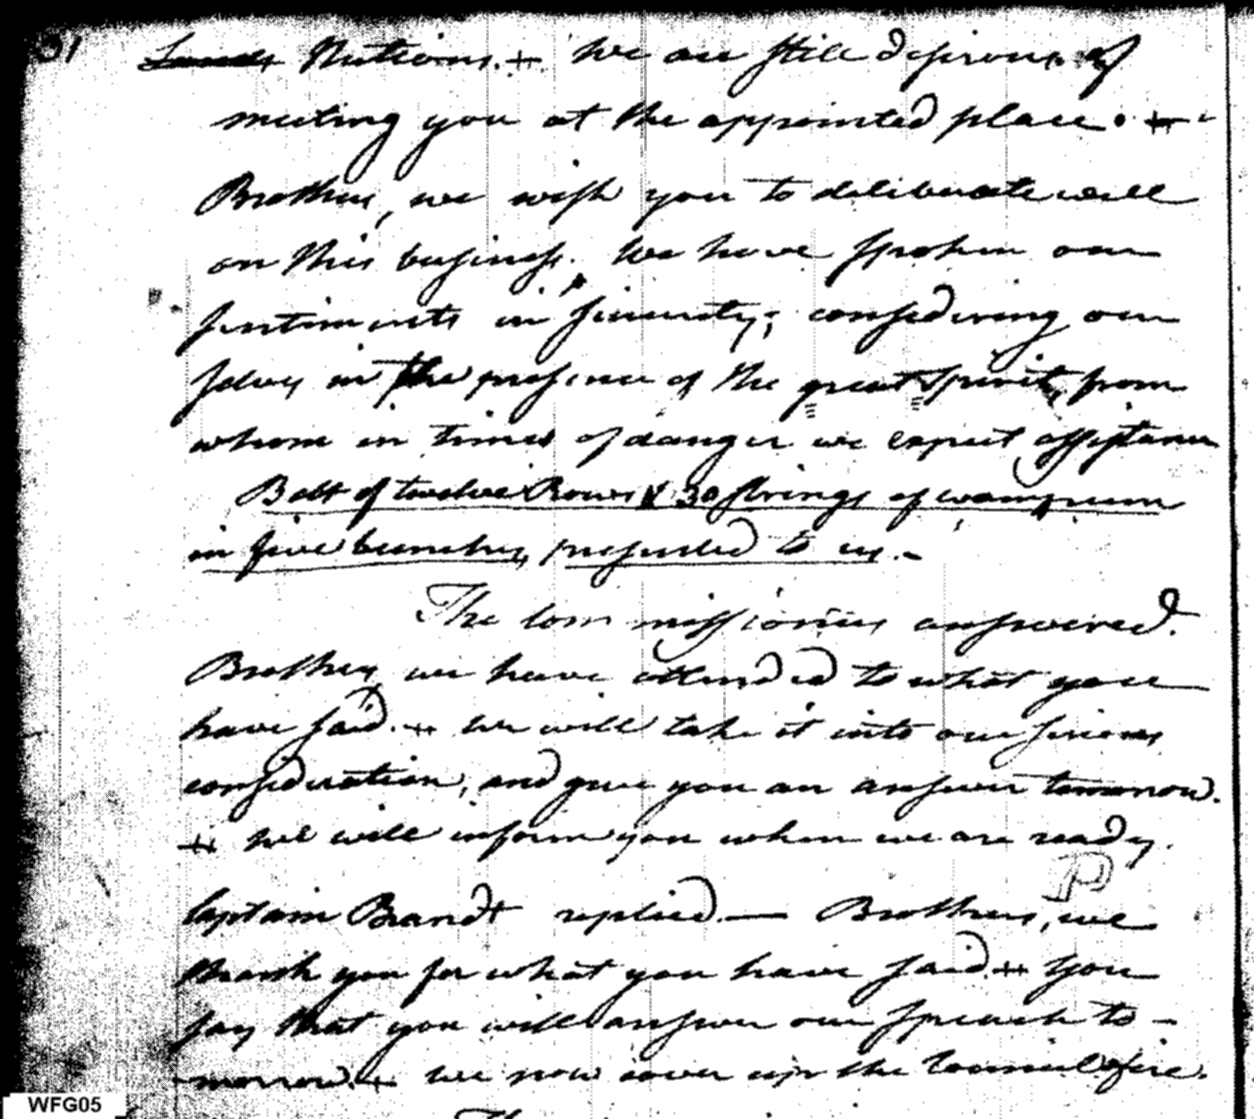 31
Lands Nations. + We are still desirous of
meeting you at the appointed place. +
Brothers, we wish you to deliberate well
on this business. We have spoken our
sentiments in sincerity; considering our
selves in the presence of the great Spirit, from
whom in times of danger we expect assistance
Belt of twelve Rows & 30 strings of wampum
in five bunches, presented to us.-
The Commissioners answered.
Brothers we have attended to what you
have said. + We will take it into our serious
consideration, and give you an answer tomorrow.
+ We will inform you when we are ready.
Captain Brandt replied. — Brothers, we
thank you for what you have said. + You
say that you will answer our speech to-
morrow. + We now cover up the Council fire.
WFG05